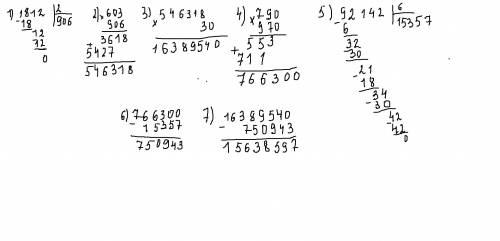 1) 1812 | 2
-18 | 906
12
12
0
2) × 603
906
3618
5427
546318
3) × 546318
30
16389540
4) × 790
970
+ 553
711
766300
5) 92142 | 6
- 6 | 15357
32
30
- 21
18
- 34
30
- 42
42
0
6) 766300
- 15357
750943
7) 16389540
- 750943
15638597